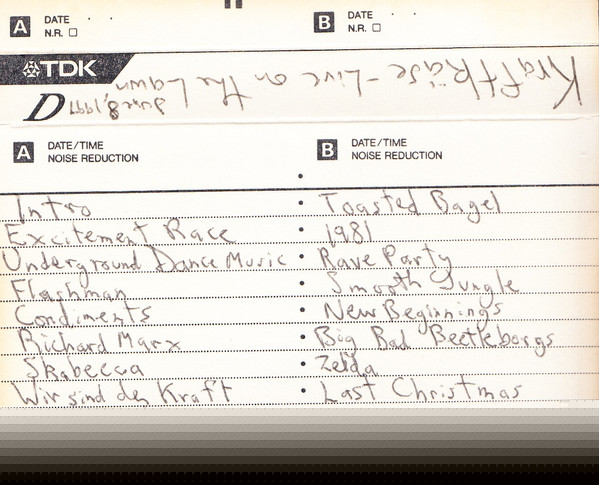 A DATE
N.R.
B DATE
N.R.
TDK
D
Kraftkäse - Live on the Lawn
June 8, 1997
A DATE/TIME
NOISE REDUCTION
B DATE/TIME
NOISE REDUCTION
Intro
Excitement Race
Underground Dance Music
Flashman
Condiments
Richard Marx
Skabecca
Wir sind der Kraft
Toasted Bagel
1981
Rave Party
Smooth Jungle
New Beginnings
Big Bad Beetleborgs
Zelda
Last Christmas